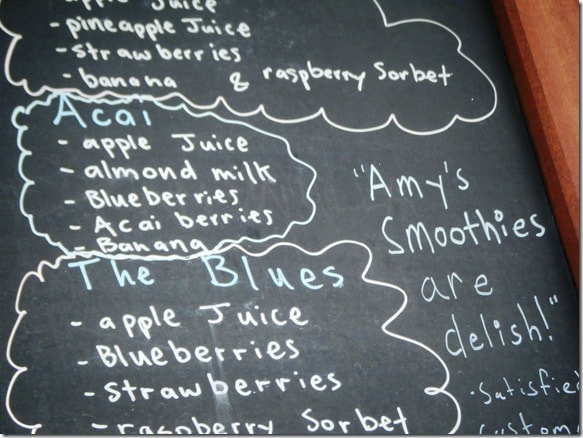 apple Juice
- pineapple Juice
- Strawberries
- banana & raspberry Sorbet
Acai
- apple Juice
- almond milk
- Blueberries
- Acai berries
- Banana
The Blues
- apple Juice
- Blueberries
- Strawberries
- raspberry Sorbet
"Amy's
Smoothies
are
delish!"
- Satisfied